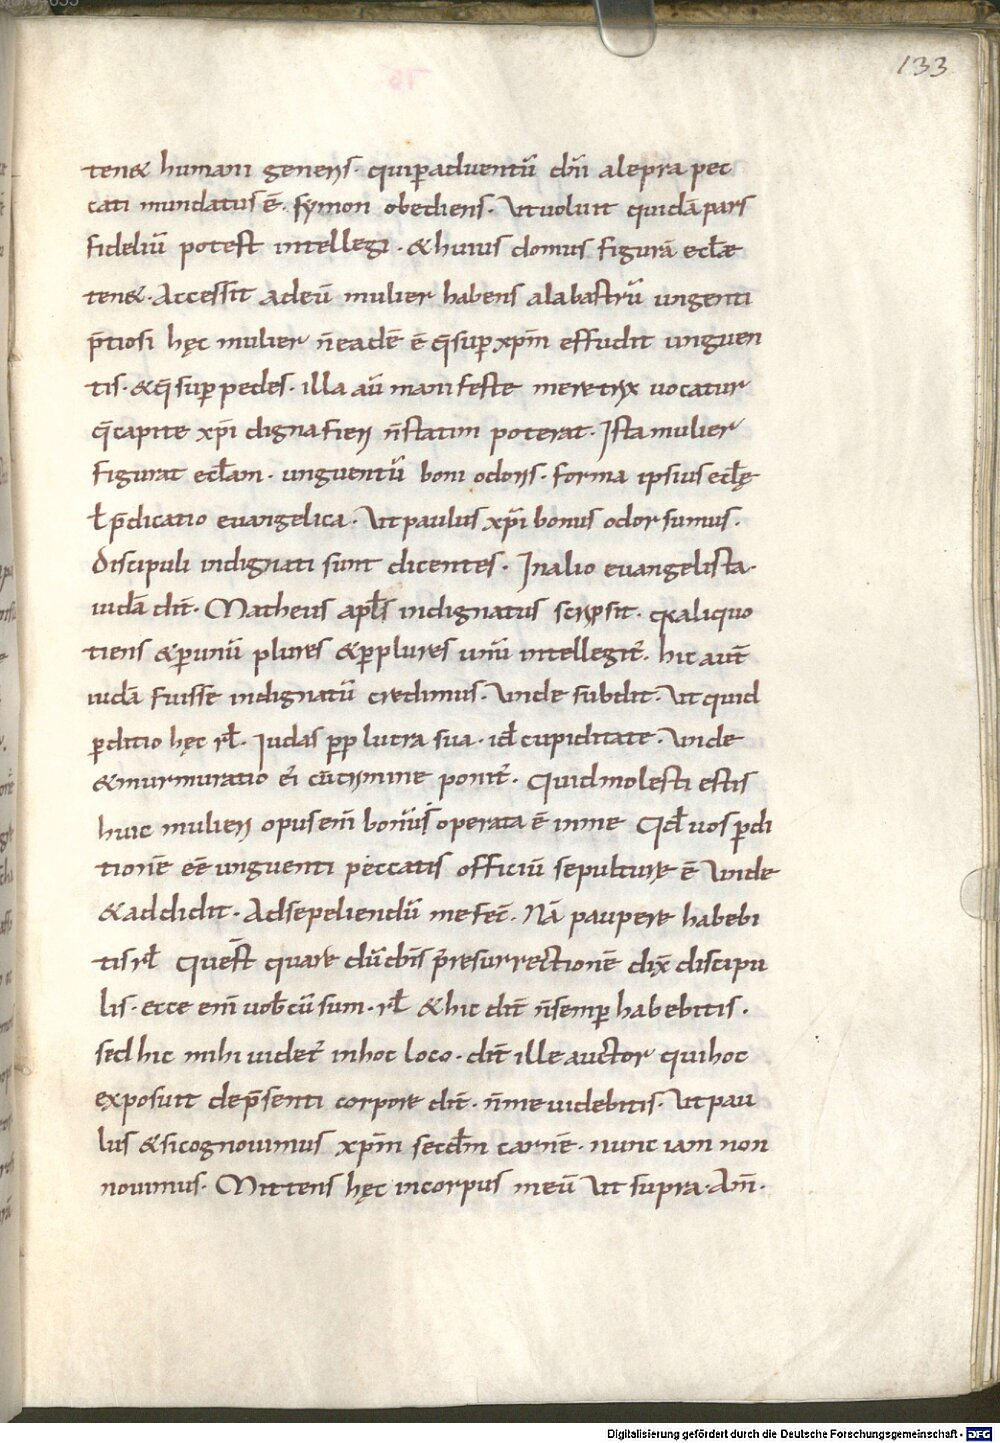 133
ten& humani generis· quip̱aduentū dn̄i alepra pec
cati mundatus ē· symon obediens· Vtuoluit quidā pars
fideliū potest intellegi· &huius domus figurā ecl̄ae
ten&· Accessit adeū mulier habens alabastrū ungenti
p̄tiosi hęc mulier n̄eadē ē q̄sup̱ xp̄m effudit unguen
tis· &q̄ sup̱ pedes· illa aū manifeste meretrix uocatur
q̄capite xp̄i digna fieri n̄statim poterat· Ista mulier
figurat ecl̄am· unguentū boni odoris· forma ipsius ecl̄ę
ƚ p̄dicatio euangelica· Vtpaulus xp̄i bonus odor sumus·
Discipuli indignati sunt dicentes· Inalio euangelista·
iudā dit̄· Matheus apl̄s indignatus scripsit· q̄aaliquo
tiens &p̱unū plures &p̱plures unū intellegit̄· hic aut̄
iudā fuisse indignatū credimus· Vnde subdit· Vtquid
p̱ditio hęc rł· Iudas pp̱ lucra sua· id̄ cupiditate· Vnde
&murmuratio ei cūcrimine ponit̄· Quidmolesti estis
huic mulieri opus eni̅ bonūs operata ē inme Qd̄ uos p̱di
tionē eē unguenti peccatis officiū sepulture ē Vnde
&addidit· Adsepeliendū mefec̄· Nā paupere habebi
tis rł Quest̄ quare dūdn̄s p̄resurrectionē dix̄ discipu
lis· ecce em̄ uob̄cū sum· rł &hic dit̄ n̄semp̱ habebitis·
sed hic mihi uidet̄ inhoc loco· dit̄ ille auctor quihoc
exposuit dep̄senti corpore dit̄· n̄me uidebitis· Vtpau
lus &sicognouimus xp̄m secd̄m carnē· nunc iam non
nouimus· Mittens hęc incorpus meū Vt supra· Am̄·
Digitalisierung gefördert durch die Deutsche Forschungsgemeinschaft - DFG